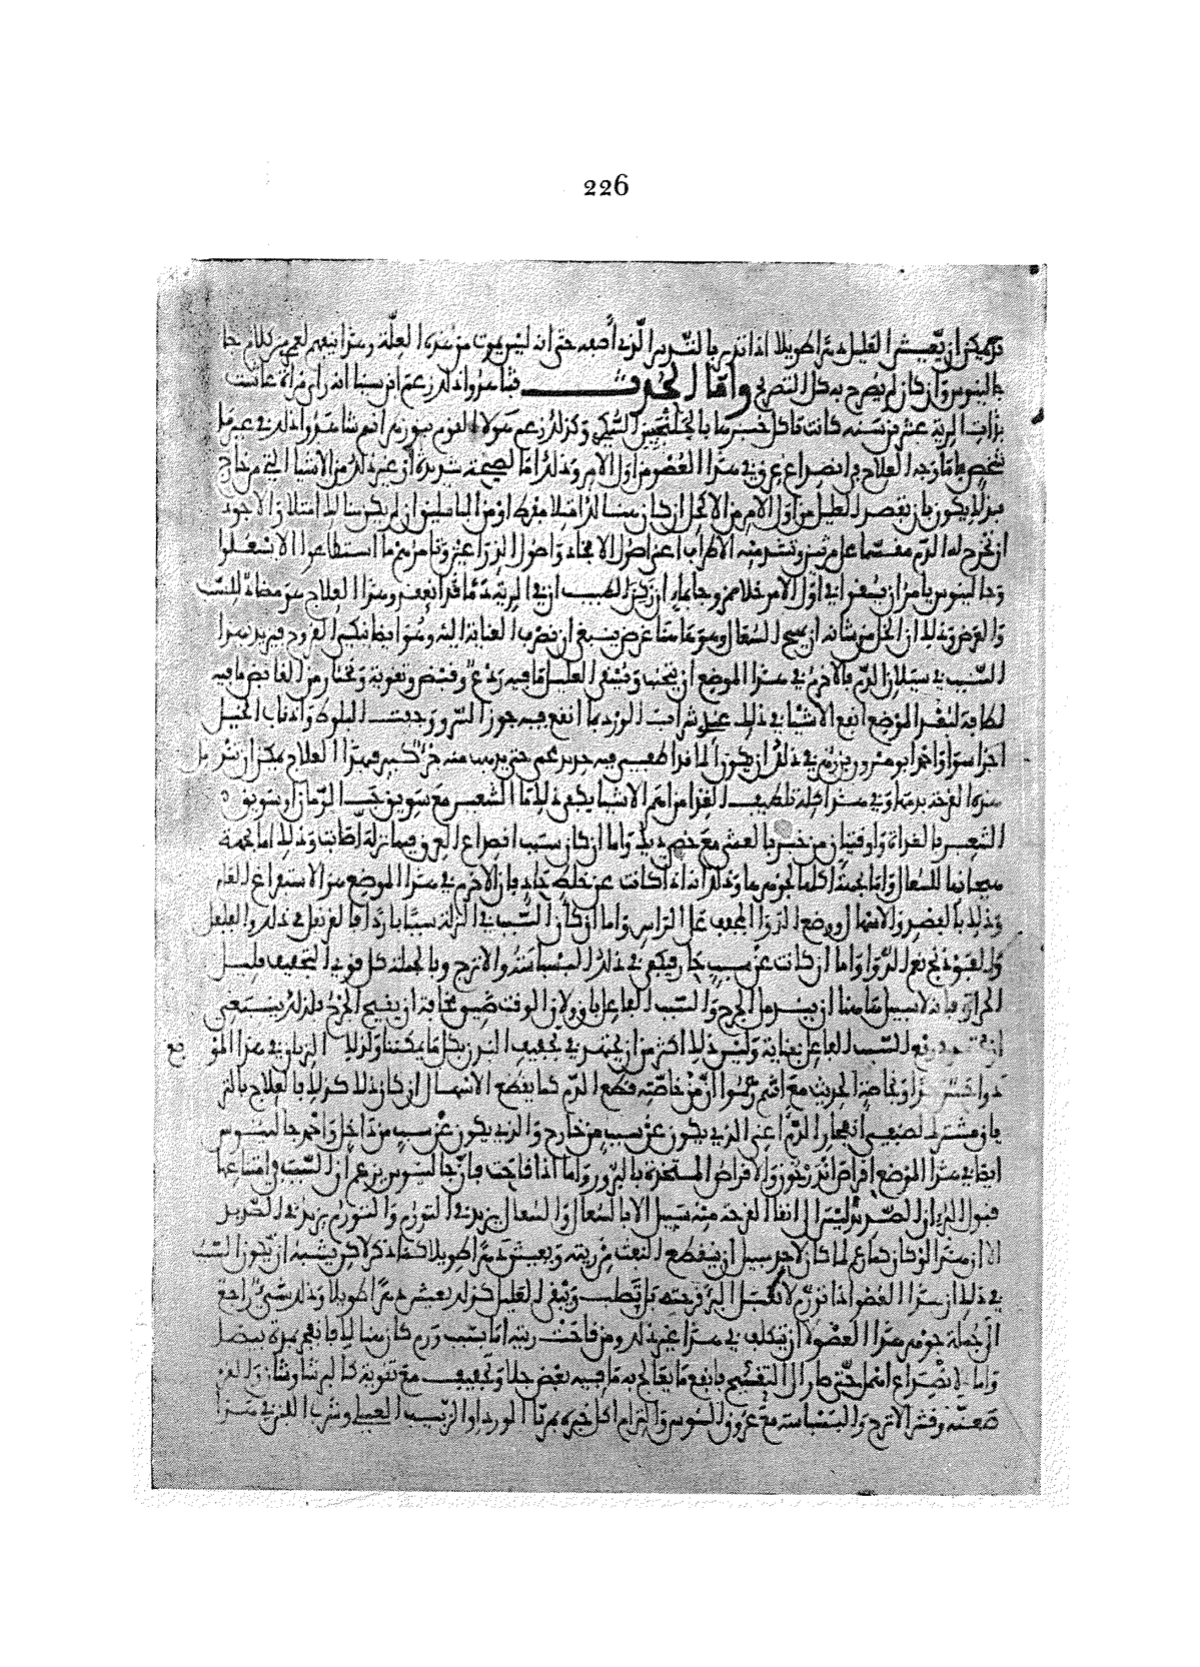 226
قد يمكن ان يعيش العليل دهرا طويلا اذا تدبر بالتدبير الذي أصفه حتى انه ليس يموت من هذه العلة وهذا يفهم لعمري من كلام جا
جالينوس وان كان لم يصرح به كل التصريح واما الحدث فشاهدوا ذلك زعم ابن سينا انه راى مراة عاشت
بذات الرية عشرين سنة كانت تاكل خبزها بالجلنجبين السكري وكذلك زعم هولا القوم بنو زهر انهم شاهدوا ذلك في غير ما
شخص واما وجه العلاج في انصداع عرق في هذا العضو من اول الامر وذلك اما لصيحة شديدة او غير ذلك من الاشيا التي من خارج
فبذلك يكون بان يفصد العليل من اول الامر من الاكحل ان كان هنالك امتلا مفرط او من الباسليق ان لم يكن هنالك امتلا والاجود
ان تخرج له الدم مقسما على مرتين وتشد منه الاطراف اعني اصول الافخاذ واصول الذراعين وتامرهم ما استطاعوا الا يسعلوا
وجالينوس يامر ان يسقوا في اول الامر خلا ممزوجا بماء ان ذكر الطبيب ان في الرية دما قد انعقد وهذا العلاج هو مضاد للسبب
والعرض وذلك ان الخل من شانه ان يهيج السعال وهو مما عرض ينبغي ان تصرف العناية اليه وهو ايضا ينكي القروح فيزيد هذا
السبب في سيلان الدم فالاحزم في هذا الموضع ان يجتنب ويسقى العليل ما فيه ردع وقبض وتقوية وتختار من القابض ما فيه
لطافة لبعد الموضع انفع الاشيا في ذلك عندي شراب الورد بما انفع فيه جوز السرو وجفت البلوط واذناب الخيل
اجزا سوا واخبر ابو مروان بن زهر في ذلك ان يكون الما قد اطفي فيه حديد محمى حتى يذهب منه جزء كبير فبهذا العلاج يمكن ان تندمل
هذه القرحة بدمها وفي هذا كله تلطيف الغذا من اهم الاشيا يكفي ذلك ما الشعير مع سويق حب الرمان او سويق
الشعير بالغداة واوقيتان من خبز بالعشي مع خصي ديك واما ان كان سبب انصداع العرق فيها نزلة اصابت وذلك اما بجهة
هيجانها للسعال واما بجهة اكلها لجوهرها وذلك انه اذا كانت عن خلط حاد فان الاحزم في هذا الموضع هو الاستفراغ العام
وذلك بالفصد والاسهال ووضع الدوا المجفف على الراس واما ان كان السبب في النزلة سببا باردا فالقرنفل في ذلك والفلفل
والفوذنج نعم الدوا واما ان كانت عن سبب حار فيكفي في ذلك البسباسة والاترج وبالجملة كل قوي التجفيف قليل
الحرارة فانه لا سبيل هاهنا ان يندمل الجرح والسبب الفاعل باق ولان الوقت ضيق مخافة ان يقيح الجرح فلذلك ينبغي
ان تجتهد في دفع السبب الفاعل بغاية وليس ذلك اكثر من ان يجتهد في تجفيف البدن بكل ما يمكننا ولذلك الترياق في هذا المو
ضع
دوا حسن جدا وبخاصة الحديث مع انهم زعموا ان من خاصته قطع الدم كما يقطع الاسهال ان كان ذلك كذلك فالعلاج بالتر
ياق مشترك لصنفي انفجار الدم اعني الذي يكون عن سبب من خارج والذي يكون عن سبب من داخل واحمد جالينوس
ايضا في هذا الموضع اقراص اندرخون والاقراص المتخذة بالبزور واما اذا قاحت فان جالينوس يزعم ان السبب في امتناعها
قبول البرء ان الصديد ليس له ان انقا القرحة منه سبيل الا بالسعال والسعال يزيد في التورم والتورم يزيد في الصديد
الا ان هذا لو كان كما زعم لما كان لاحد سبيل ان ينقطع النفث من ريته ويعيش دهرا طويلا كما ذكر لاكن يشبه ان يكون السبب
في ذلك ان هذا العضو اذا تورم لا تقبل البرء قرحته بل تصلب ويبقى العليل كذلك يعيش دهرا طويلا وذلك شيء راجع
الى جملة جوهر هذا العضو لا ان يتكلف في هذا غير ذلك ومن قاحت ريته اما بسبب ورم كان هنالك فانفجر مرة بيصل
واما لانصداع اهمل حتى صار الى التقيح فانفع ما يعالج به ما فيه بعض جلا وتجفيف مع تقوية كالبرشاوشان والغر
ضعفه وقشر الاترج والبسباسة مع عروق السوس والتزام اكل خبزه بمربا الورد او الزبيب العسلي وشرب اللبن في هذا